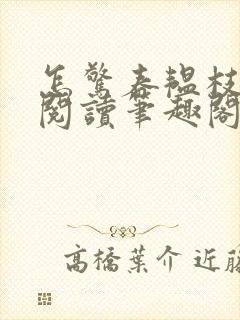 怎驚春韞枝
閱讀筆趣閣
高橋葉介 近藤